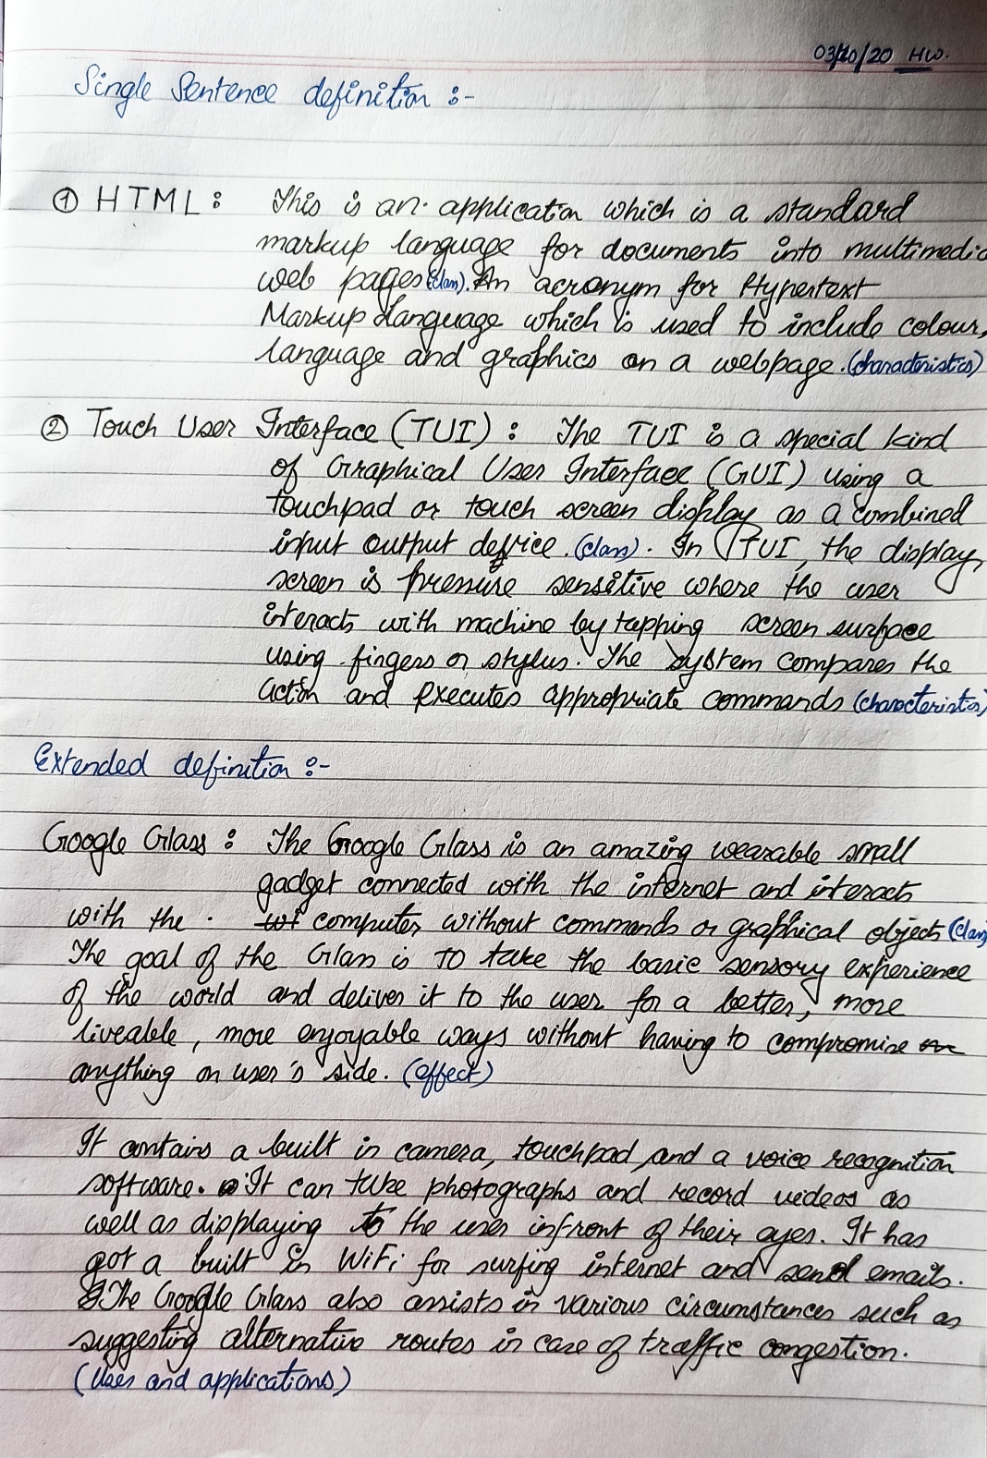 03/10/20 HW.
Single Sentence definition :-
① HTML : This is an application which is a standard
markup language for documents into multimedia
web pages (class). An acronym for Hypertext
Markup Language which is used to include colour,
language and graphics on a webpage. (characteristics)
② Touch User Interface (TUI) : The TUI is a special kind
of Graphical User Interface (GUI) using a
touchpad or touch screen display as a combined
input output device. (class). In TUI, the display
screen is pressure sensitive where the user
interacts with machine by tapping screen surface
using fingers or stylus. The system compares the
action and executes appropriate commands (characteristics)
Extended definition :-
Google Glass : The Google Glass is an amazing wearable small
gadget connected with the internet and interacts
with the computer without commands or graphical objects (class)
The goal of the Glass is to take the basic sensory experience
of the world and deliver it to the user for a better, more
liveable, more enjoyable ways without having to compromise
anything on user's side. (effect)
It contains a built in camera, touchpad and a voice recognition
software. It can take photographs and record videos as
well as displaying to the user infront of their eyes. It has
got a built in WiFi for surfing internet and send emails.
The Google Glass also assists in various circumstances such as
suggesting alternative routes in case of traffic congestion.
(Uses and applications)